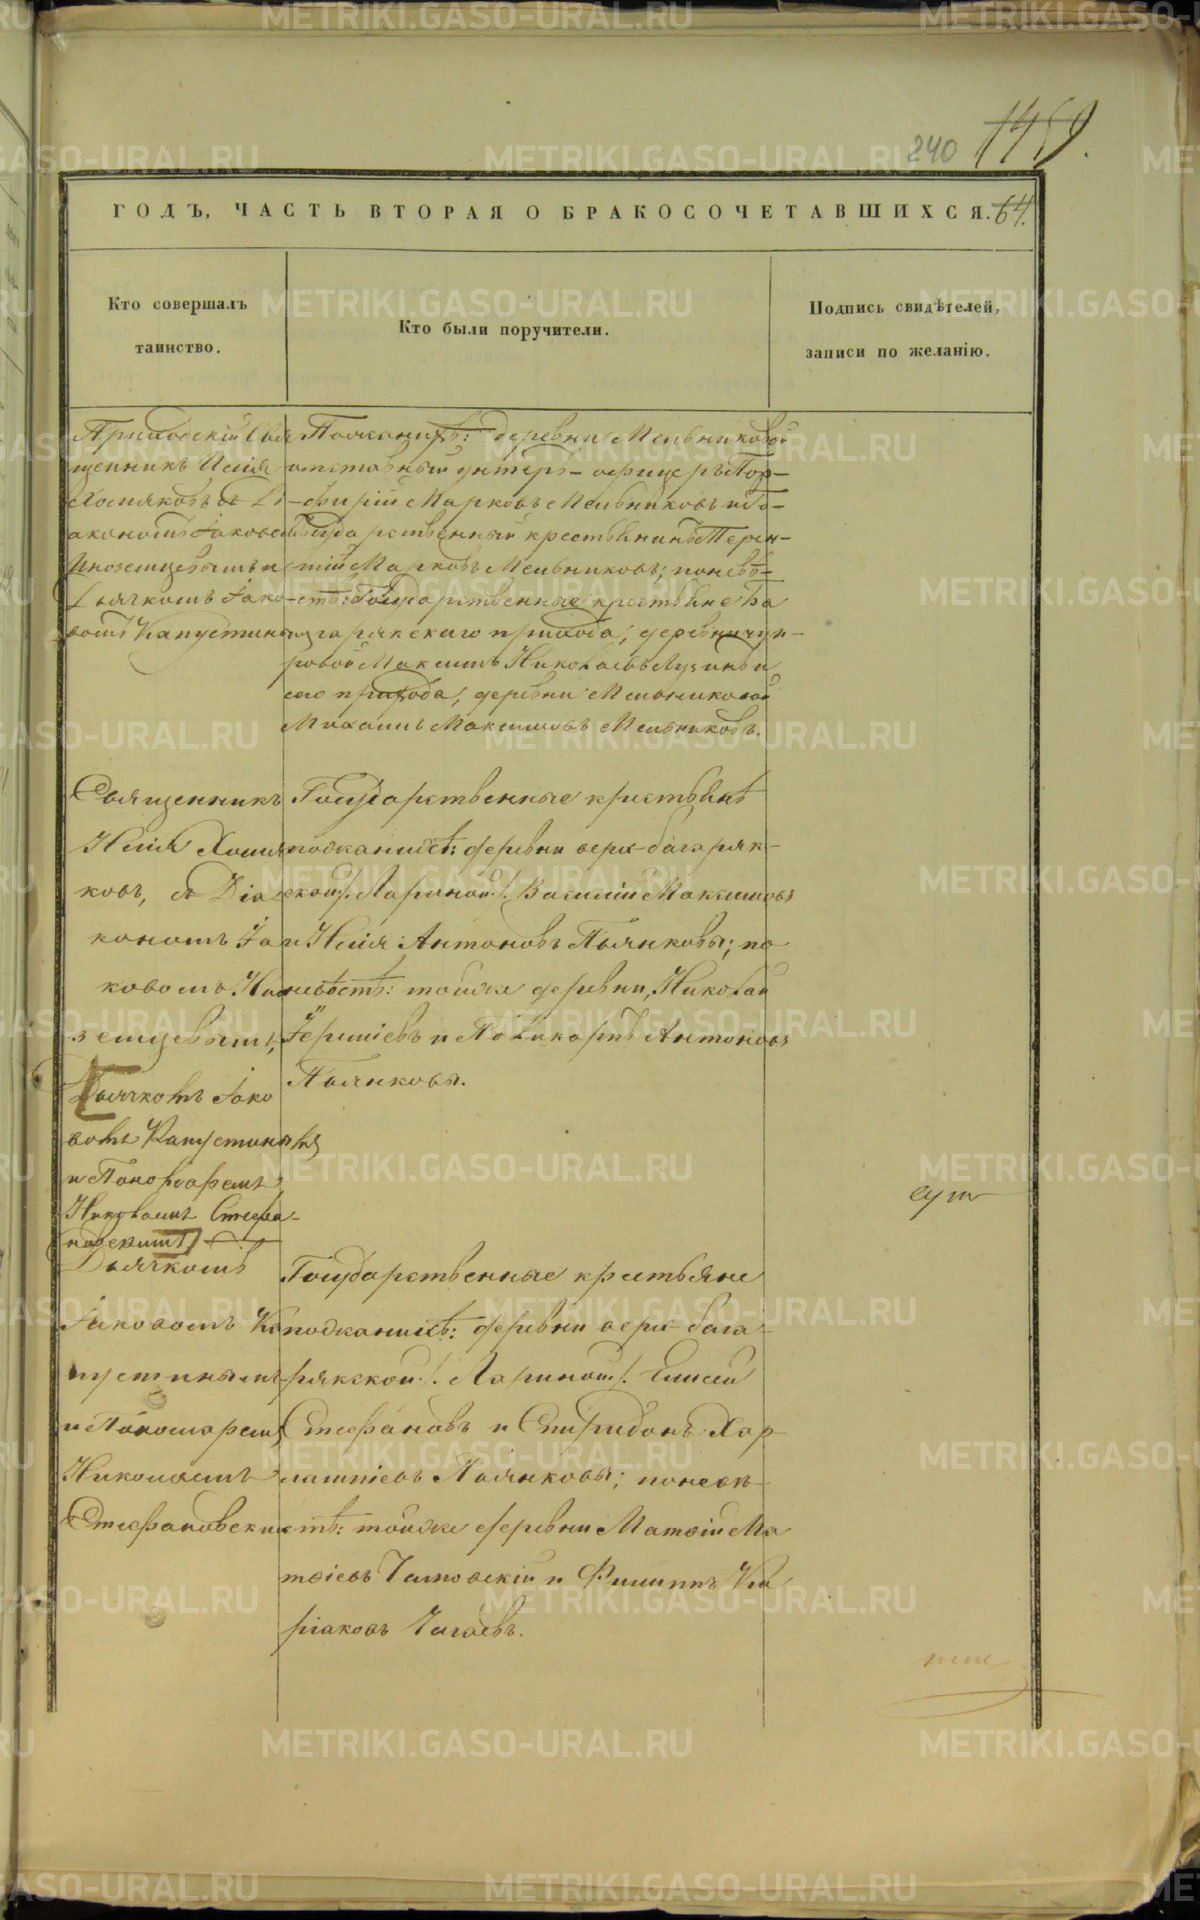 240 1459.
ГОДЪ, ЧАСТЬ ВТОРАЯ О БРАКОСОЧЕТАВШИХСЯ. 64.
Кто совершалъ
таинство.
Кто были поручители.
Подпись свидѣтелей,
записи по желанію.
Приходскій Свя
щенникъ Илія
Хомяковъ съ Ді-
акономъ Іаковомъ
Иноземцевымъ и
Дьячкомъ Іако-
вомъ Капустинымъ
По женихѣ: деревни Мельниковой
отставный унтеръ-офицеръ Пор-
фирій Марковъ Мельниковъ и го-
сударственный крестьянинъ Терен-
тій Марковъ Мельниковъ; по невѣ-
стѣ: Государственные крестьяне Ба
гарякскаго прихода, деревни
ровой Максимъ Николаевъ Лузинъ и
сего прихода, деревни Мельниковой
Михаилъ Максимовъ Мельниковъ.
Священникъ
Илія Хомя
ковъ, съ Діа
кономъ Іа
ковомъ Ино
земцевымъ,
Дьячкомъ Іако
вомъ Капустинымъ
и Пономаремъ
Николаемъ Стефа-
новскимъ
Государственные крестьянѣ
по женихѣ: деревни верх-багаряк-
ской /Лариной/ Василій Максимовъ
и Илія Антоновъ Пьянковы; по
невѣстѣ: тойже деревни, Николай
и Поликарпъ Антоновъ
Пьянковы.
сут
Дьячкомъ
Іаковомъ Ка
пустинымъ
и Пономаремъ
Николаемъ
Стефановским
Государственные крестьяне
по женихѣ: деревни верх-бага-
рякской /Лариной/ Елисей
Стефановъ и Спиридонъ Хар-
лампіевъ Пьянковы; по невѣ-
стѣ: тойже деревни Матѳій Ма
тѳіевъ и Филиппъ Ки
ріаковъ Чагаевъ.